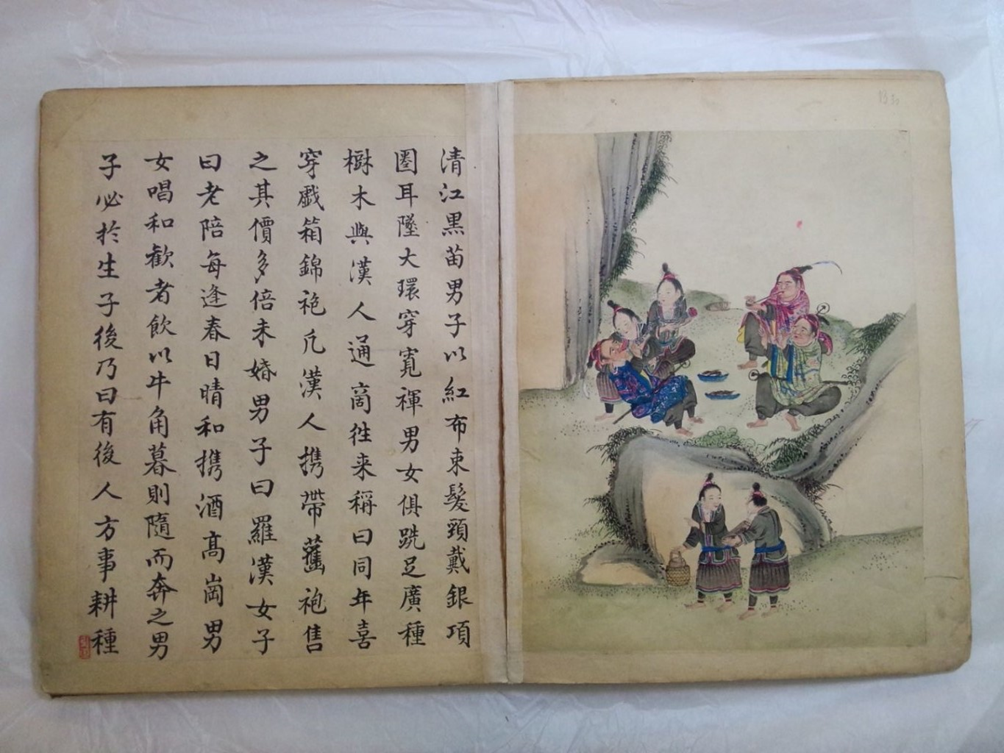 清江黑苗男子以紅布束髮頸戴銀項
圏耳墜大環穿寬褌男女俱跣足廣種
樹木與漢人通商徃来稱曰同年喜
穿戲箱錦袍凢漢人携帶舊袍售
之其價多倍未婚男子曰羅漢女子
曰老陪每逢春日晴和携酒高崗男
女唱和歡者飲以牛角暮則隨而奔之男
子必於生子後乃曰有後人方事耕種